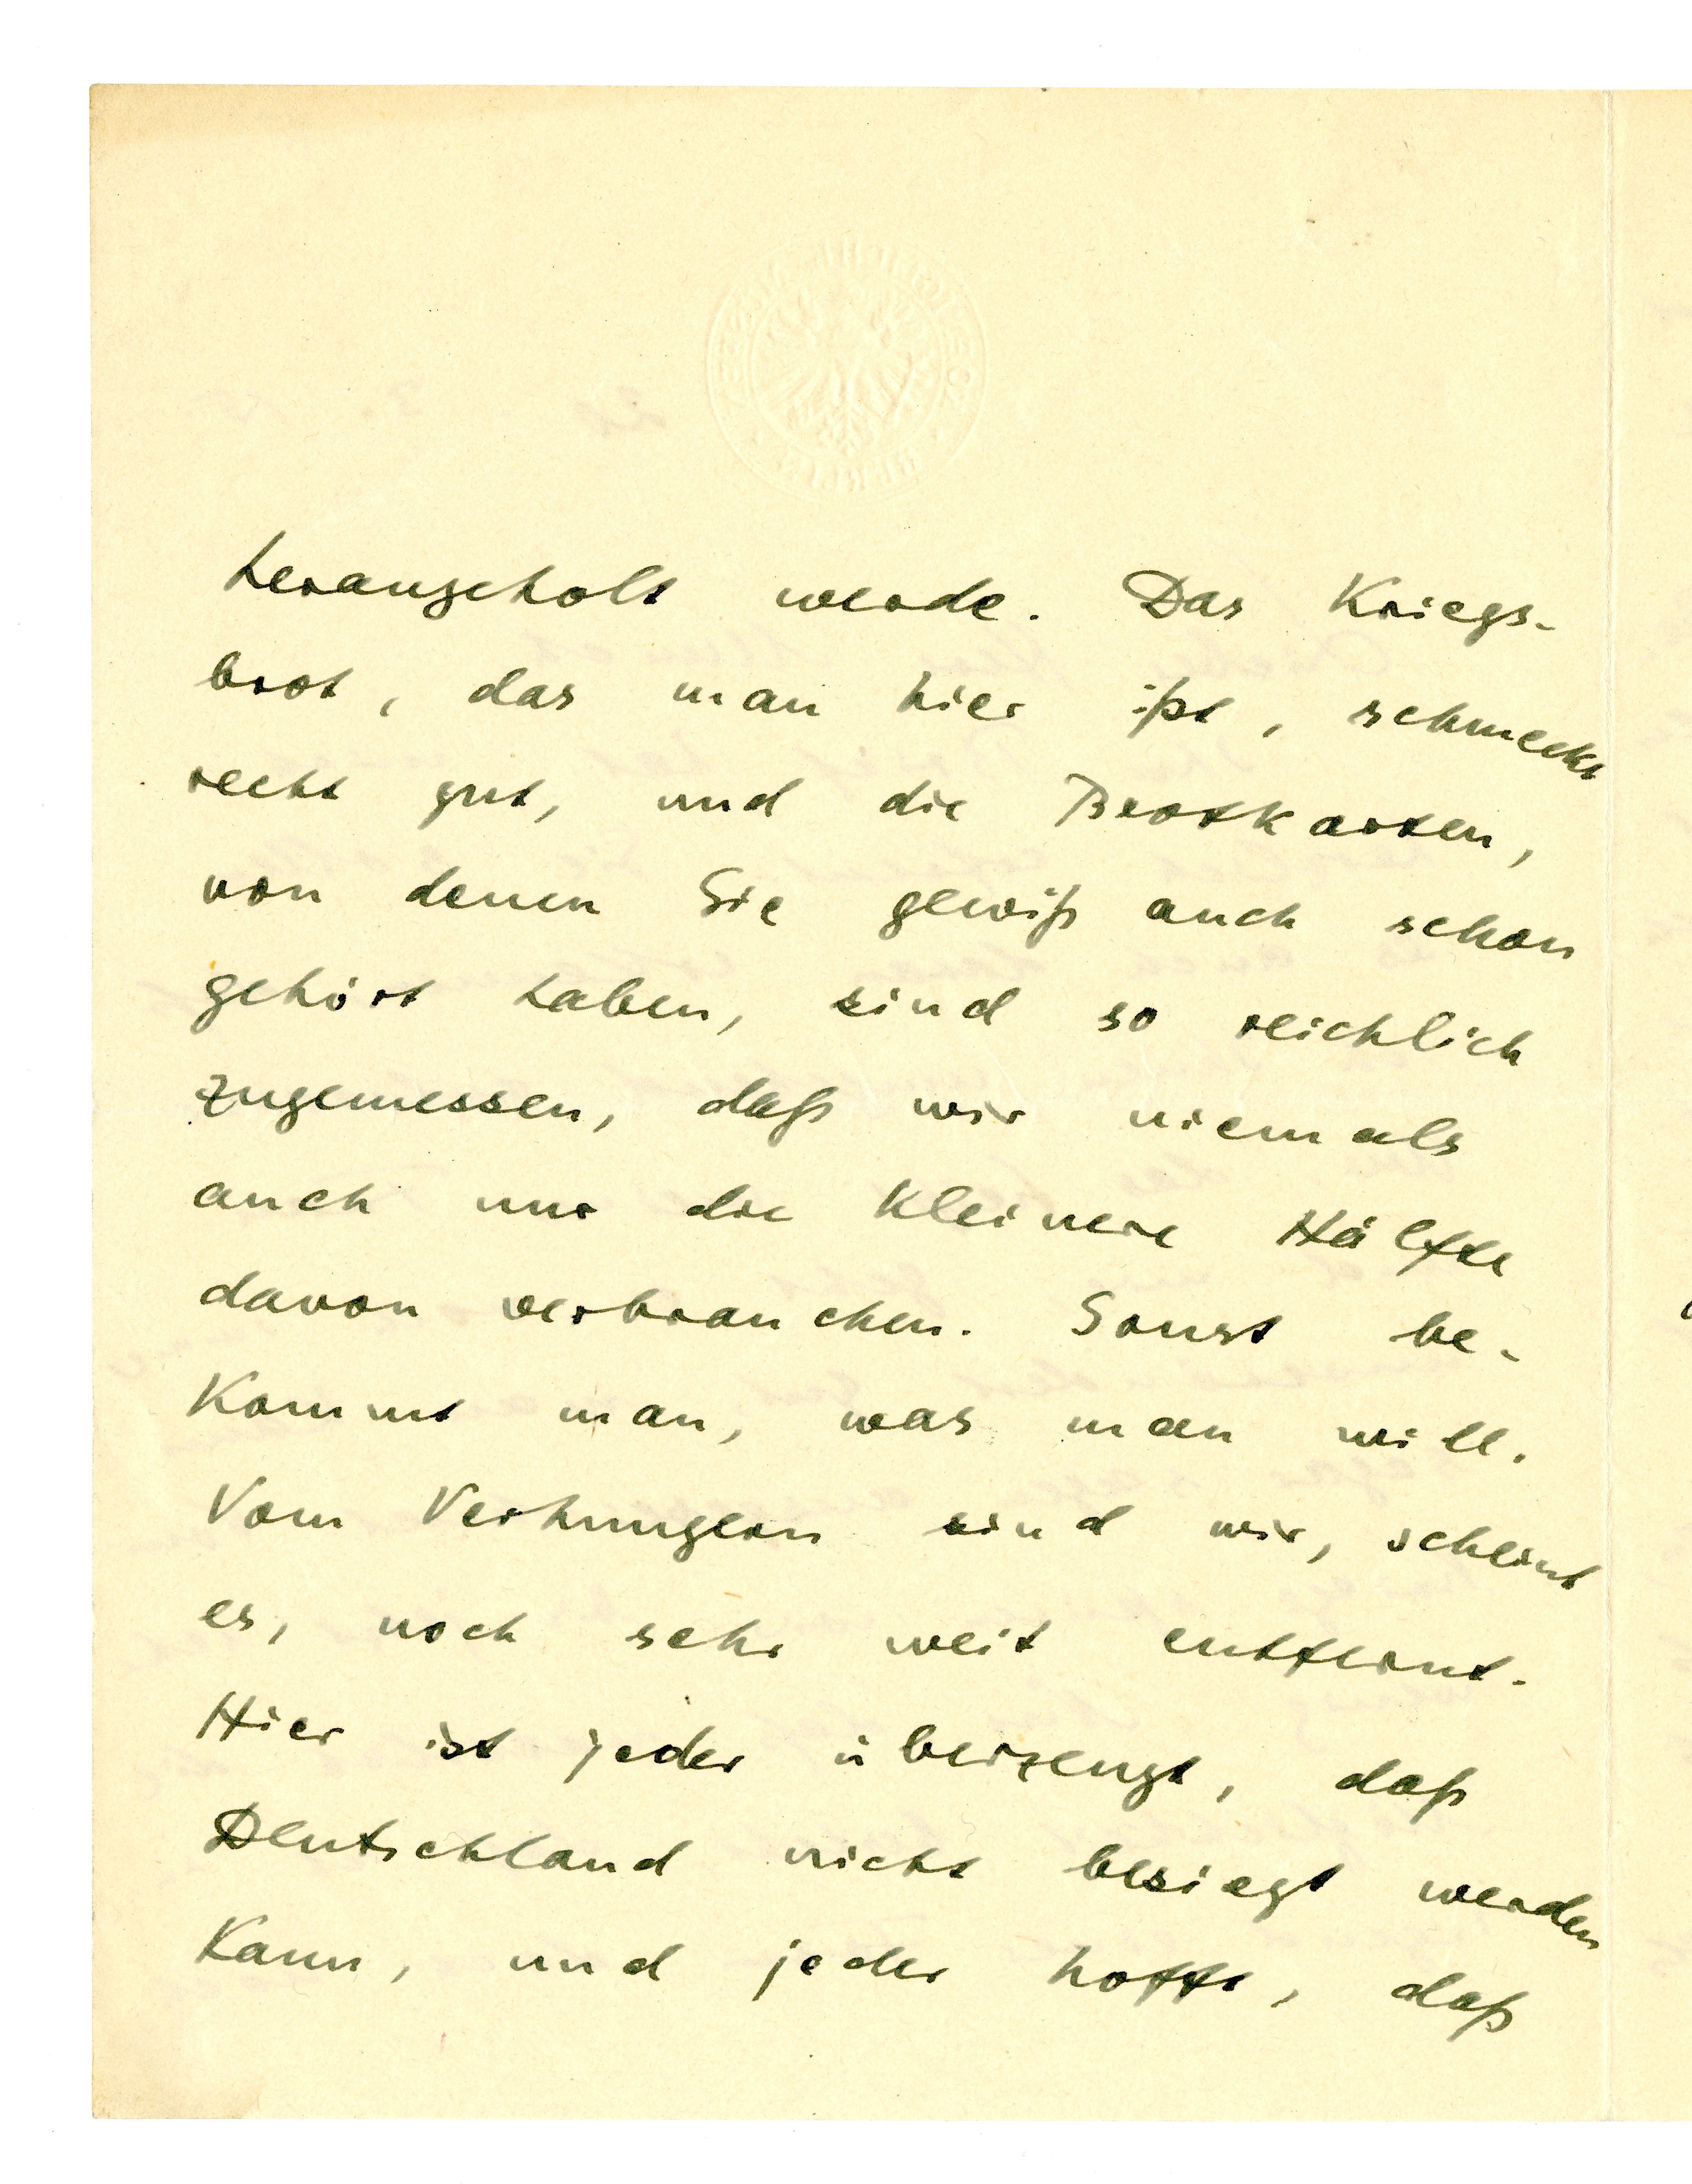 herangeholt werde. Das Kriegs-
brot, das man hier ißt, schmeckt
recht gut, und die Brotkarten,
von denen Sie gewiß auch schon
gehört haben, sind so reichlich
zugemessen, daß wir niemals
auch nur die kleinere Hälfte
davon verbrauchen. Sonst be-
kommt man, was man will.
Vom Verhungern sind wir, scheint
es, noch sehr weit entfernt.
Hier ist jeder überzeugt, daß
Deutschland nicht besiegt werden
kann, und jeder hofft, daß